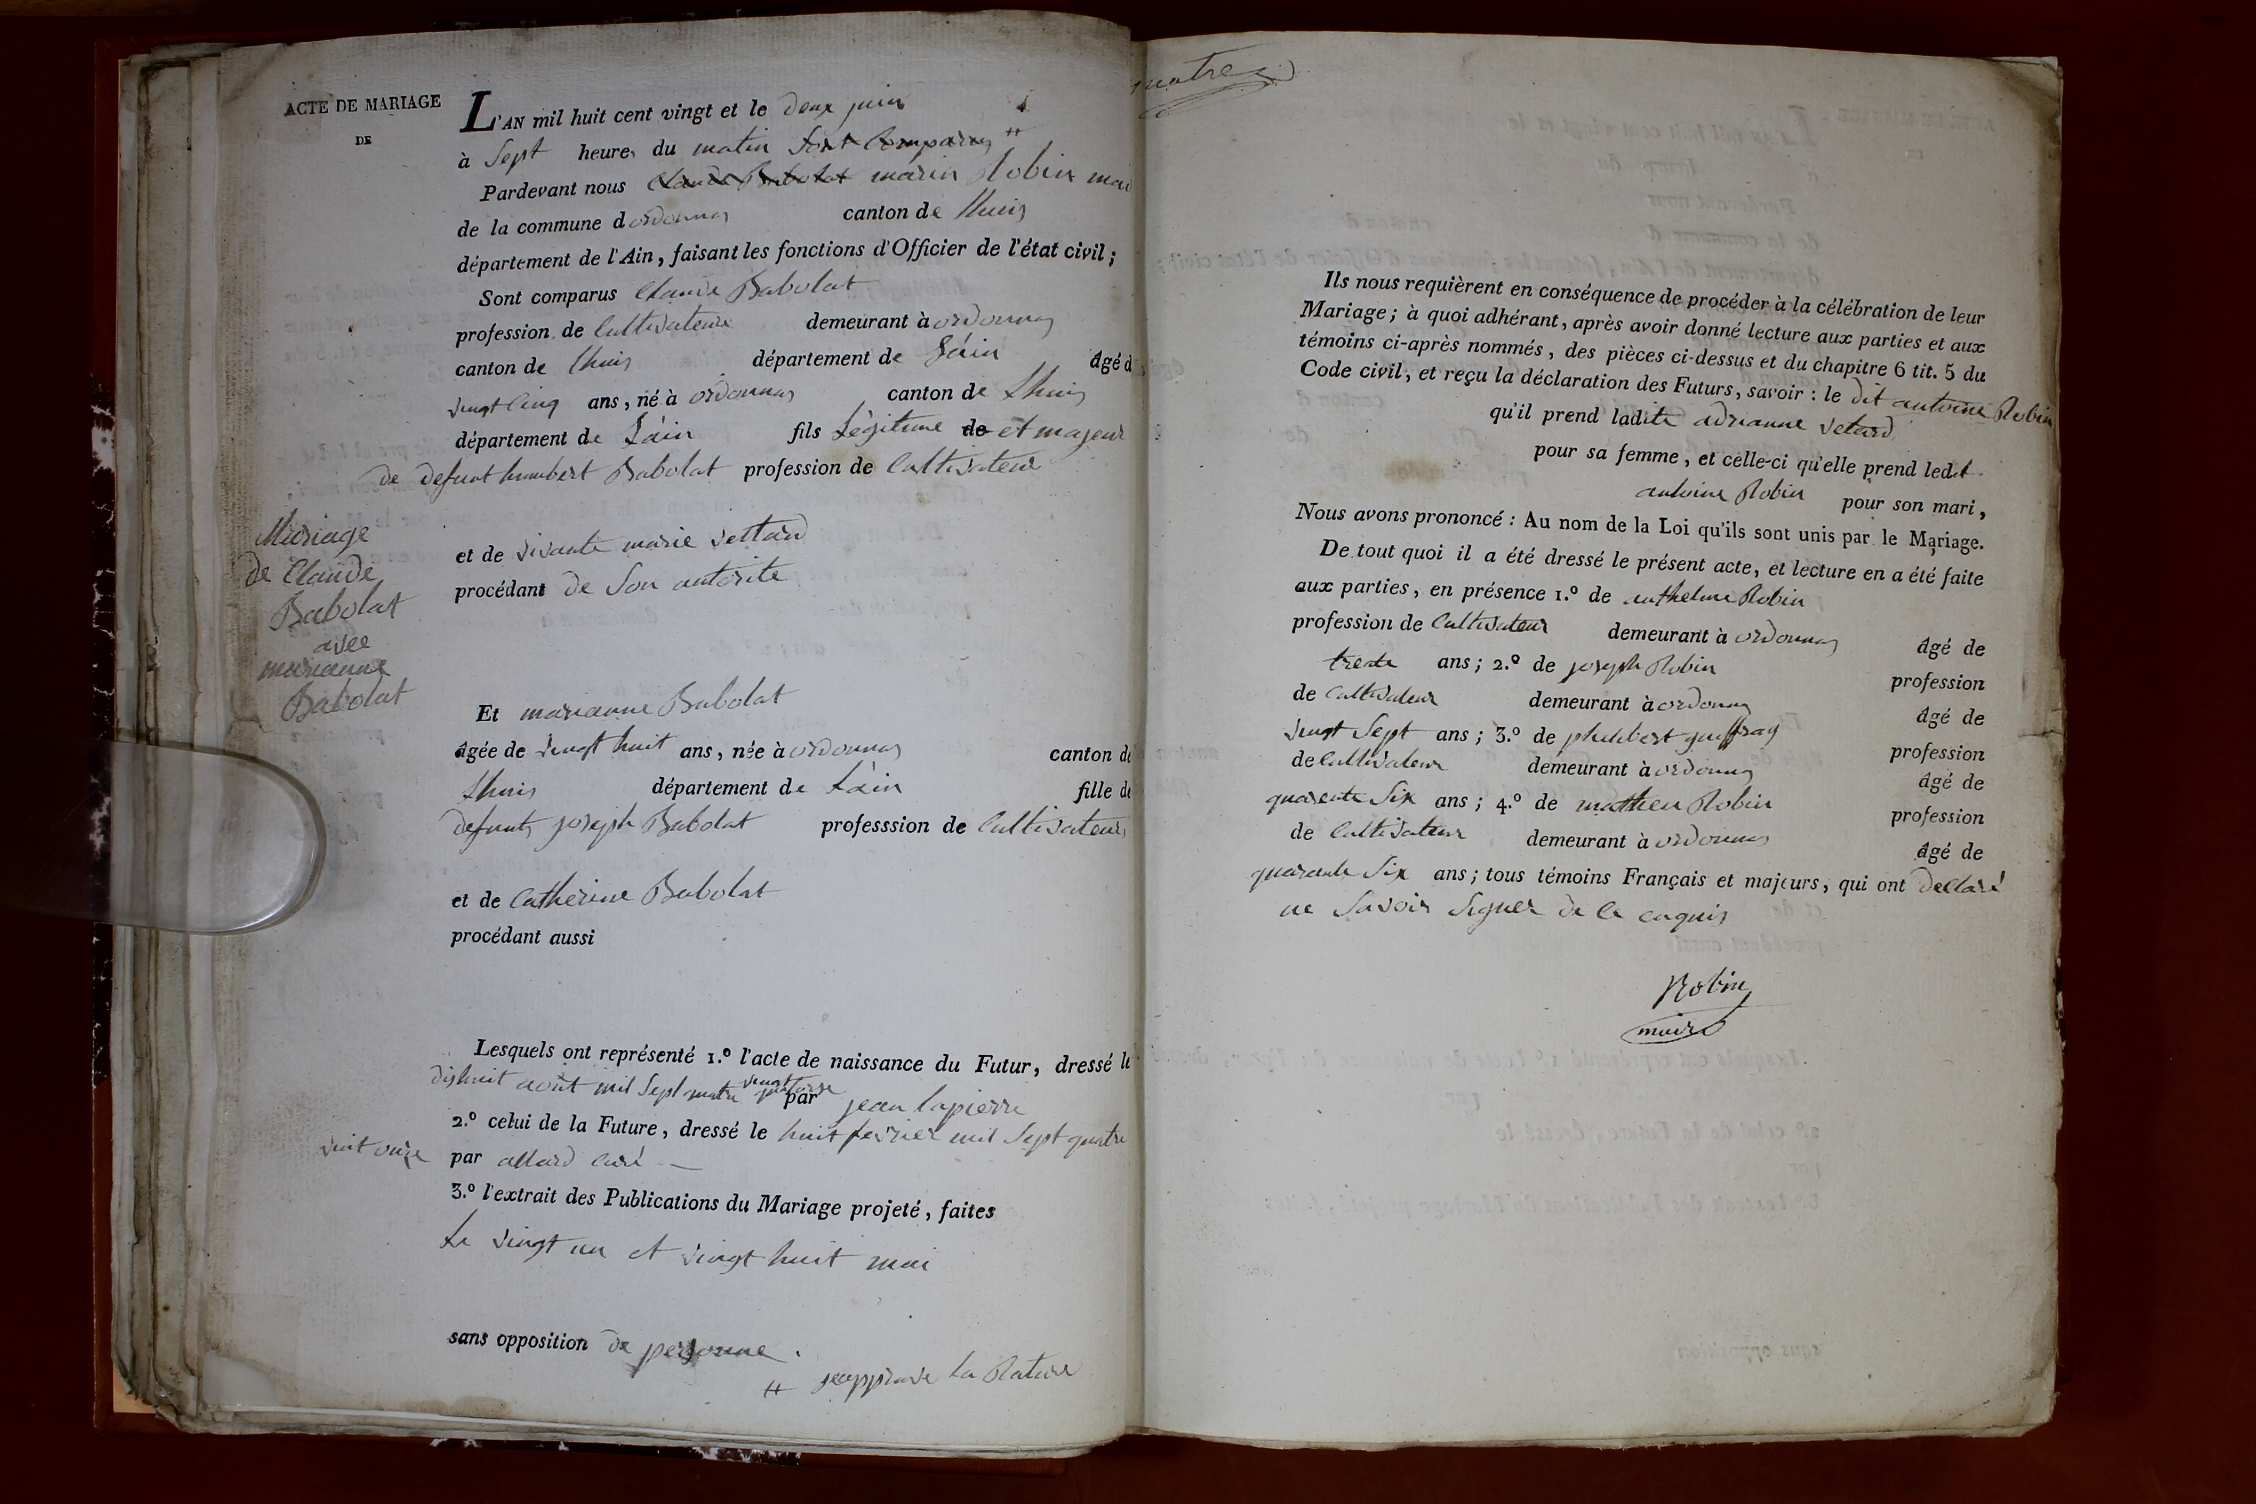 ACTE DE MARIAGE
DE
L'AN mil huit cent vingt et le deux juin
à Sept heures du matin Sont Comparus #
Pardevant nous Claude Babolat marin Robin mai
de la commune dordonnas canton de Lhuis
département de l'Ain, faisant les fonctions d'Officier de l'état civil;
Sont comparus Claude Babolat
profession de Cultivateur demeurant à ordonnas
canton de Lhuis département de L'ain âgé d
vingt Cinq ans, né à ordonnas canton de Lhuis
département de L'ain fils Légitime de et majeur
de defunt humbert Babolat profession de Cultivateur
et de vivante marie vettard
procédant de Son autorite
Mariage
de Claude
Babolat
avec
marianne
Babolat
Et marianne Babolat
âgée de vingt huit ans, née à ordonnas canton de
Lhuis département de L'ain fille de
defunts joseph Babolat professsion de Cultivateurs
et de Catherine Babolat
procédant aussi
Lesquels ont représenté 1.º l'acte de naissance du Futur, dressé le
dishuit août mil Sept quatre vingt quatorse par jean lapierre
2.º celui de la Future, dressé le huit fevrier mil Sept quatre
vint onze par allard Curé
3.º l'extrait des Publications du Mariage projeté, faites
Le vingt un et vingt huit mai
sans opposition de personne.
# jeapprouve La Rature
quatre
Ils nous requièrent en conséquence de procéder à la célébration de leur
Mariage; à quoi adhérant, après avoir donné lecture aux parties et aux
témoins ci-après nommés, des pièces ci-dessus et du chapitre 6 tit. 5 du
Code civil, et reçu la déclaration des Futurs, savoir: le dit antoine Robin
qu'il prend ladite adrianne vetard
pour sa femme, et celle-ci qu'elle prend ledit
antoine Robin pour son mari,
Nous avons prononcé: Au nom de la Loi qu'ils sont unis par le Mariage.
De tout quoi il a été dressé le présent acte, et lecture en a été faite
aux parties, en présence 1.º de anthelme Robin
profession de Cultivateur demeurant à ordonnas âgé de
trente ans; 2.º de joseph Robin profession
de Cultivateur demeurant à ordonnas âgé de
vingt Sept ans; 3.º de philibert guiffray profession
de Cultivateur demeurant à ordonnas âgé de
quarente Six ans; 4.º de mathieu Robin profession
de Cultivateur demeurant à ordonnas âgé de
quarante Six ans; tous témoins Français et majeurs, qui ont declaré
ne Savoir Signer de ce enquis
Robin
maire